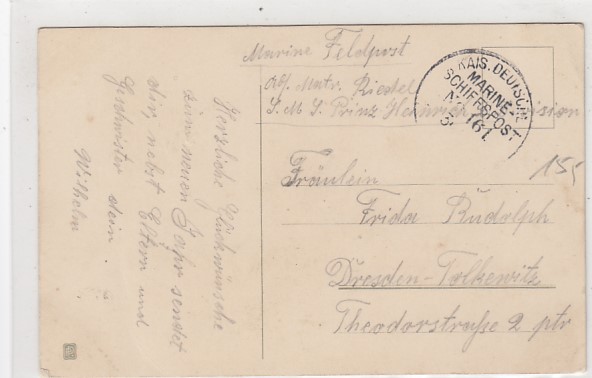 Marine Feldpost
Abs. Matr. Riedel
S. M. S. Prinz Heinrich Division
KAIS. DEUTSCHE
MARINE-
SCHIFFSPOST
No 161
155
Fräulein
Frida Rudolph
Dresden-Tolkewitz
Theodorstraße 2 ptr
Herzliche Glückwünsche
zum neuen Jahr sendet
dir, nebst Eltern und
Geschwister dein
Wilhelm